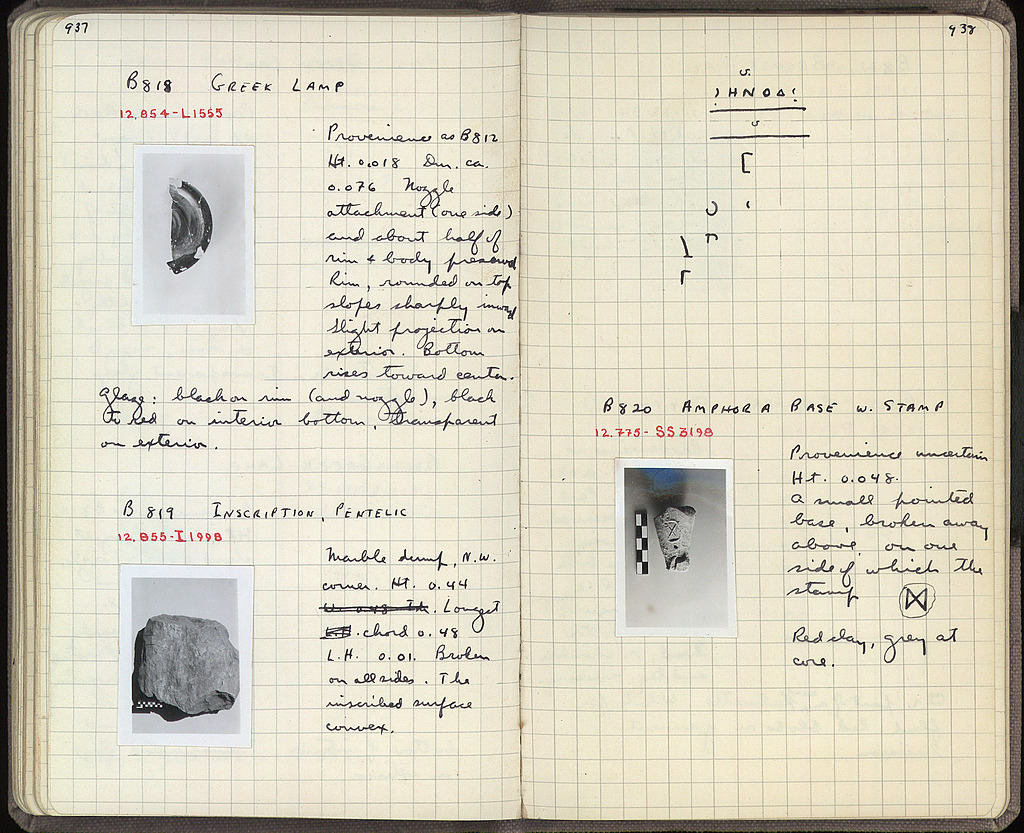 937
B818 GREEK LAMP
12.854-L1555
Provenience as B812
Ht. 0.018 Dm. ca.
0.076 Nozzle
attachment (one side)
and about half of
rim & body preserved
Rim, rounded on top
slopes sharply inward
Slight projection on
exterior. Bottom
rises toward center.
Glaze: black on rim (and nozzle), black
to red on interior bottom, transparent
on exterior.
B 819 INSCRIPTION, PENTELIC
12.855-I 1998
Marble dump, N.W.
corner. Ht. 0.44
Longest
chord 0.48
L.H. 0.01. Broken
on all sides. The
inscribed surface
convex.
938
B820 AMPHORA BASE W. STAMP
12.775-SS3198
Provenience uncertain
Ht. 0.048.
A small pointed
base, broken away
above, on one
side of which the
stamp
Red clay, grey at
core.